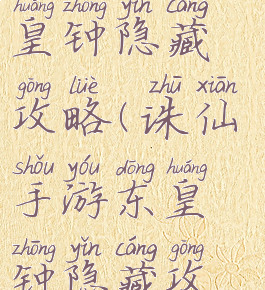 huáng zhōng yǐn cáng
皇钟隐藏
gōng lüè zhū xiān
攻略(诛仙
shǒu yóu dōng huáng
手游东皇
zhōng yǐn cáng gōng
钟隐藏攻